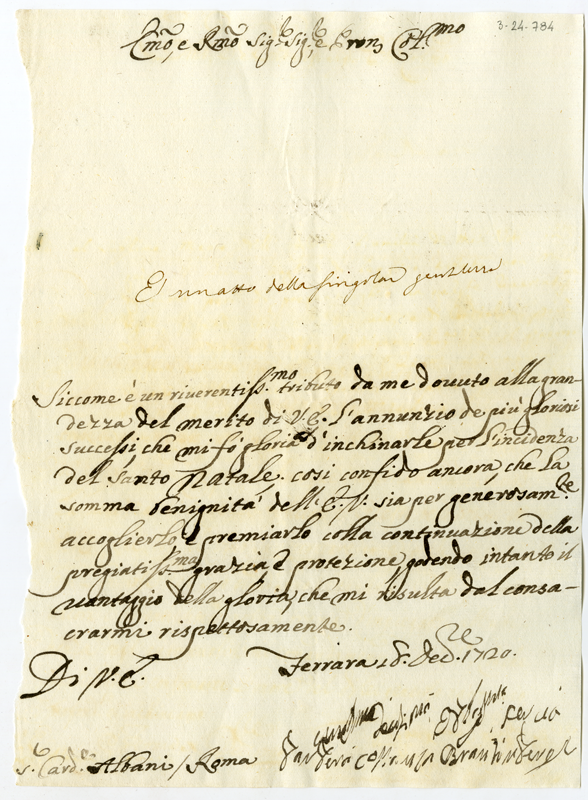 3-24-784
Em̃o, e Rm̃o Sig.r Sig.r, e Pron Col.mo
E un atto della singolar gentilezza
Siccome è un riverentiss.mo tributo da me dovuto alla gran-
dezza del merito di V.E. l'annunzio de più gloriosi
successi, che mi fò gloria d'inchinarle per l'incidenza
del Santo Natale. così confido ancora, che la
somma benignità dell'E.V. sia per generosam.te
accoglierlo e premiarlo colla continuazione della
pregiatiss.ma grazia e protezione, godendo intanto il
vantaggio della gloria, che mi risulta dal consa-
crarmi rispettosamente.
Di V.E.
Ferrara 18. Dec.re 1720.
S.r Card.e Albani / Roma